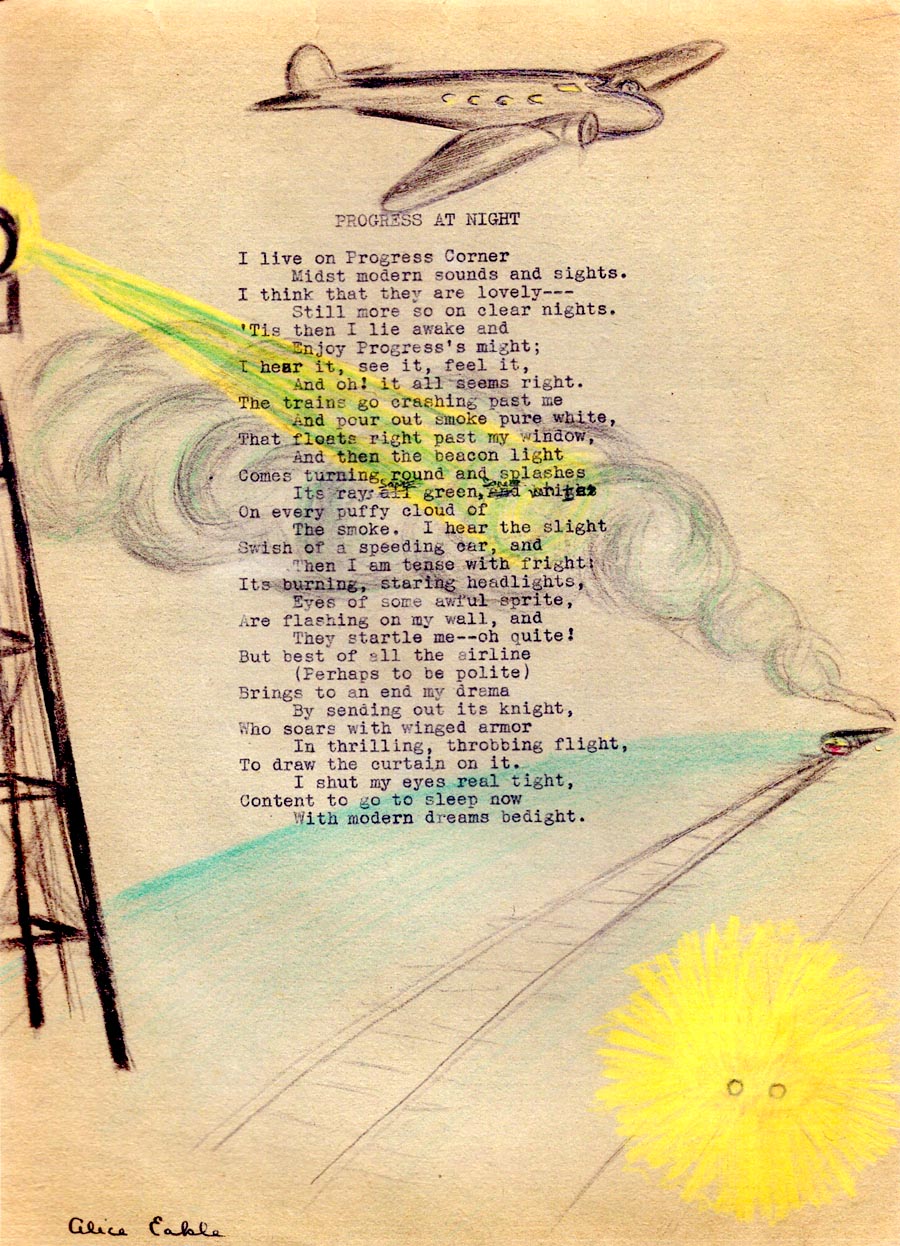 PROGRESS AT NIGHT
I live on Progress Corner
Midst modern sounds and sights.
I think that they are lovely---
Still more so on clear nights.
'Tis then I lie awake and
Enjoy Progress's might;
I hear it, see it, feel it,
And oh! it all seems right.
The trains go crashing past me
And pour out smoke pure white,
That floats right past my window,
And then the beacon light
Comes turning round and splashes
Its rays some green, some white
On every puffy cloud of
The smoke.  I hear the slight
Swish of a speeding car, and
Then I am tense with fright!
Its burning, staring headlights,
Eyes of some awful sprite,
Are flashing on my wall, and
They startle me--oh quite!
But best of all the airline
(Perhaps to be polite)
Brings to an end my drama
By sending out its knight,
Who soars with winged armor
In thrilling, throbbing flight,
To draw the curtain on it.
I shut my eyes real tight,
Content to go to sleep now
With modern dreams bedight.
Alice Eakle